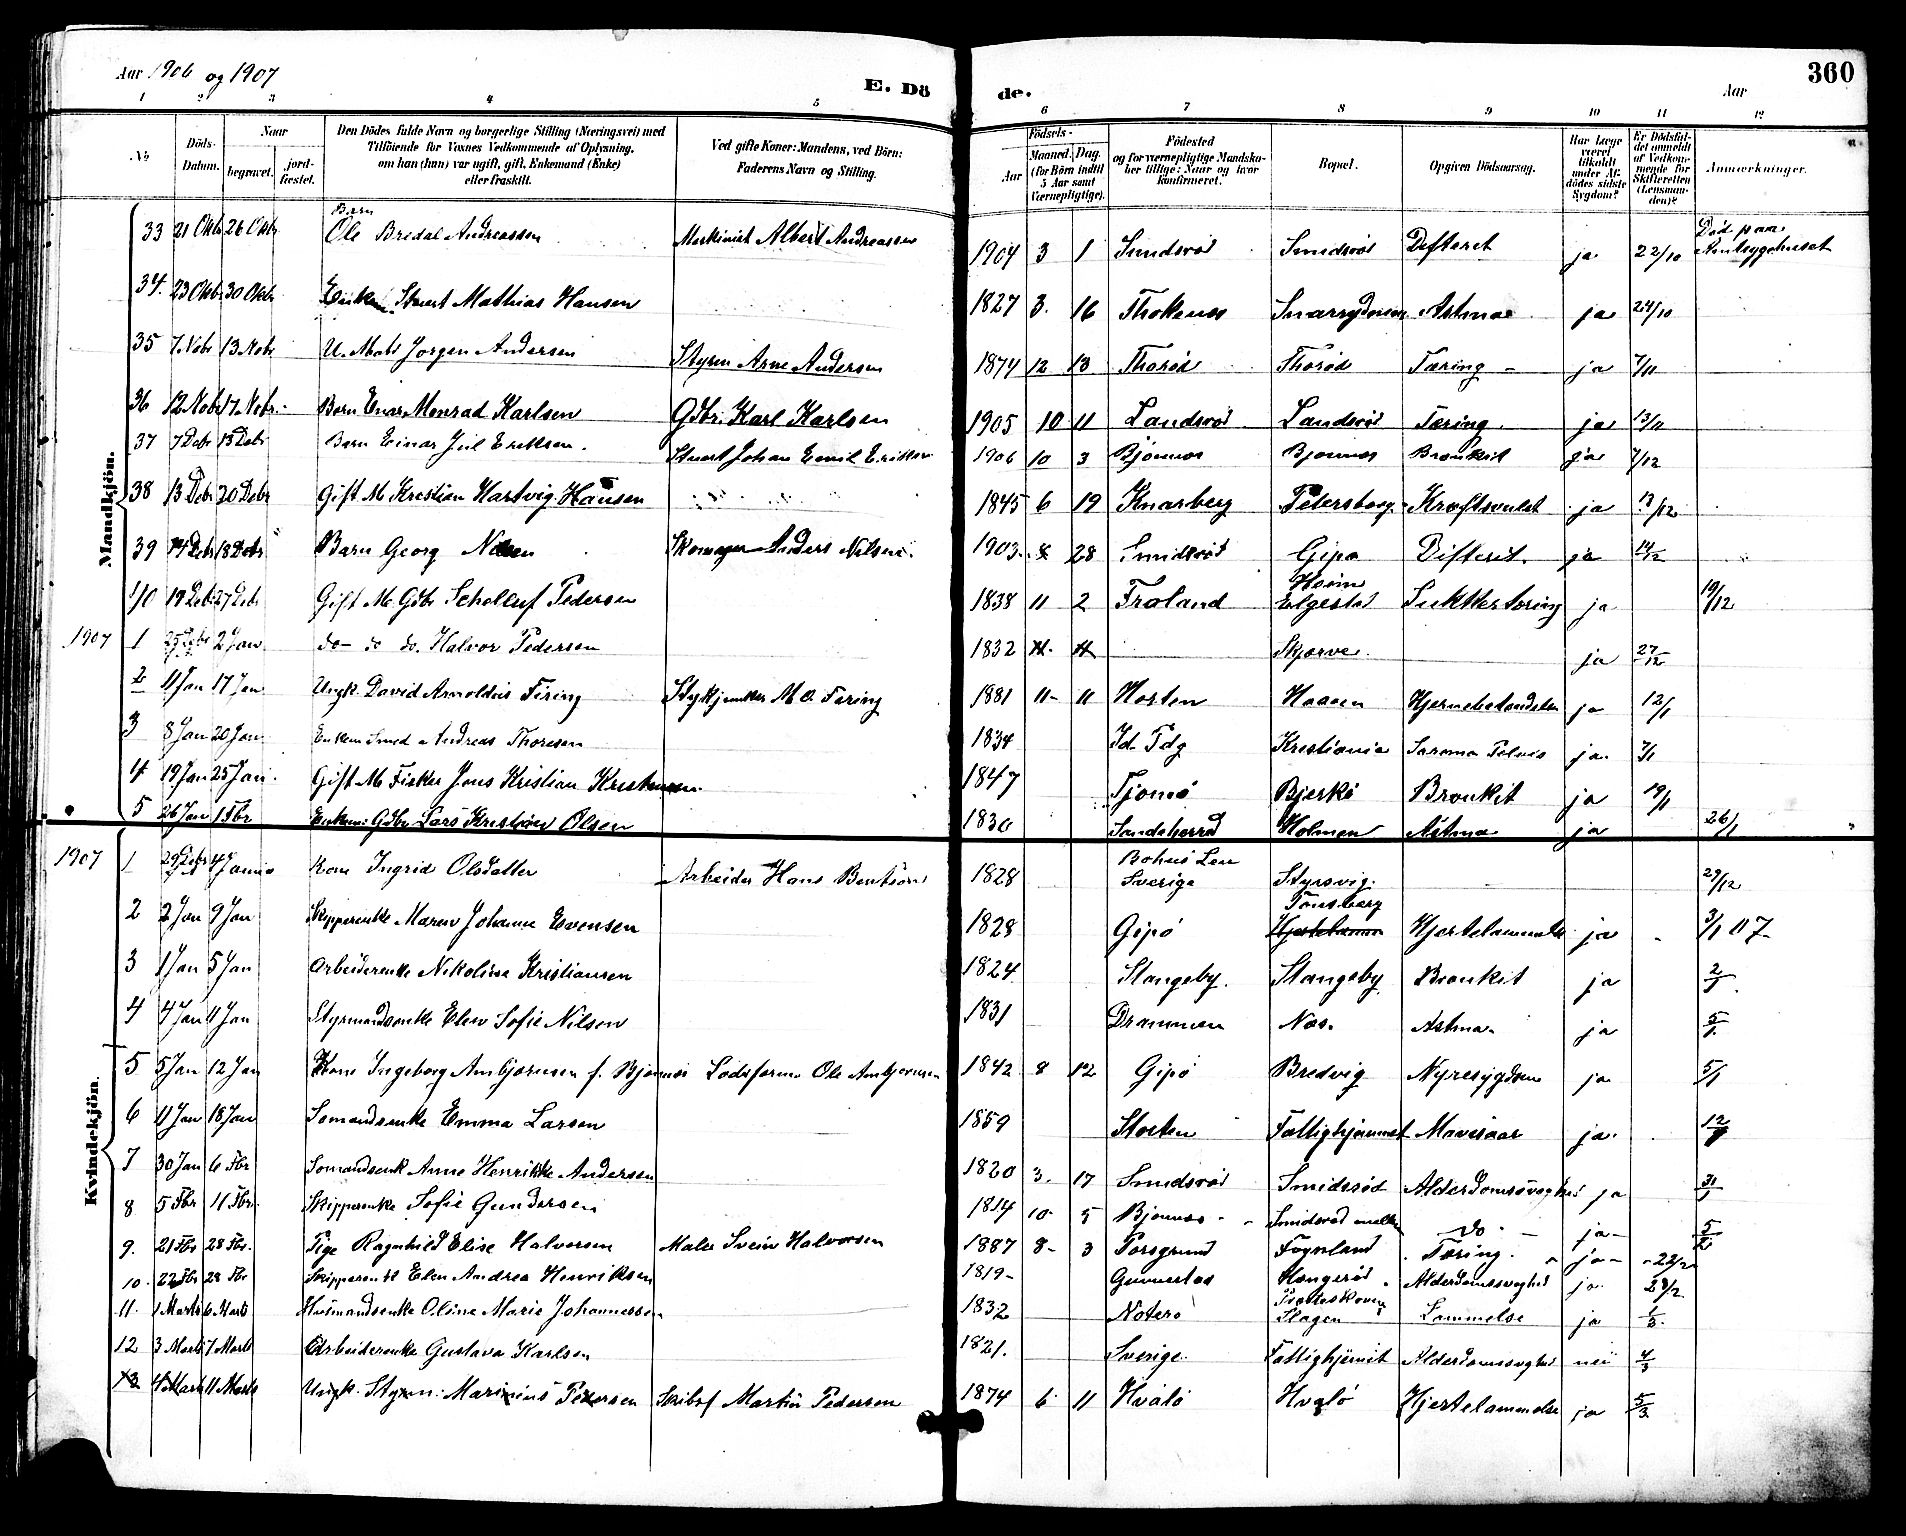 Aar 1906 og 1907
E. Dö de.
Aar
360
1 2 3 4 5 6 7 8 9 10 11 12
No.
Döds-Datum.
Naar
begravet.
jord-fæstet.
Den Dödes fulde Navn og borgerlige Stilling (Næringsvei) med Tilföiende for Voxnes Vedkommende af Oplysning, om han (hun) var ugift, gift, Enkemand (Enke) eller fraskilt.
Ved gifte Koner: Mandens, ved Börn: Faderens Navn og Stilling.
Födsels-
Aar
Maaned. Dag.
(for Börn indtil 5 Aar samt Værnepligtige).
Födested og for værnepligtige Mandska-ber tillige: Naar og hvor konfirmeret.
Bopæl.
Opgiven Dödsaarsag.
Har Læge været tilkaldt under Af-dödes sidste Sygdom?
Er Dödsfal-det anmeldt af Vedkom-mende for Skifteretten (Lensman-den)?
Anmærkninger.
Mandkjön.
33 21 Oktb 26 Oktb Barn Ole Bredal Andreassen Maskinist Albert Andreassen 1904 3 1 Smidsrød Smidsrød Difterit ja 22/10 Død paa Amtsygehuset
34. 23 Oktb 30 Oktb Enkem. Stuert Mathias Hansen 1827 3. 16 Thokenes Astma ja 24/10
35 7 Nobr 13 Nobr U. Mats Jørgen Andersen Styrm Arne Andersen 1874 12 13 Thorød Thorød Tæring - ja 7/11
36 12 Nobr 17 Nobr. Barn Enar Monrad Karlsen Gdbr. Karl Karlsen 1905 10 11 Landsrød Landsrød Tæring ja 13/11
37 7 Debr 13 Debr Barn Einar Juil Eriksen. Stuert Johan Emil Eriksen 1906 10 3 Bjønnes Bjønnes Bronkit ja 7/12
38 13 Debr 20 Debr Gift M Kristian Hartvig Hansen 1845 6 19 Knarberg Petersborg Kræftsvulst ja 13/12
39 14 Debr 18 Debr Barn Georg Nilsen Skomager Anders Nilsen 1903. 28 Smidsrød Gipø Difterit. ja 14/12
40 19 Debr 27 Debr Gift M. Gdbr Pedersen 1838 11 2 Froland Elgestad Sukkertæring ja 19/12
1907 1 25 Debr 2 Jan do- do do. Halvor Pedersen 1832 Skjærve. ja 27/12
2 11 Jan 17 Jan Ungk. David Arnoldus Fising 1881 11- 11 Horten Haaen ja 12/1
3 8 Jan 20 Jan. Enkem Smed Andreas Thoresen 1834 Id. Pdg Kristiania ja. 7/1
4 19 Jan 25 Jan. Gift M Fisker Jens Kristian Kristensen 1847 Tjømø Bjerkø Bronkit ja 19/1
5 26 Jan 1 Fbr Enkem: Gdbr Lars Kristian Olsen 1830 Sandeherred Holmen Astma ja 26/1
Kvindekjön.
1907 1 29 Debr 4 Januar Kone Ingrid Olsdatter Arbeider Hans Bentsen 1828 Bohus Len Sverige Styrsvig. 29/12
2 2 Jan 9 Jan Skipperenke Maren Johanne Evensen 1828 Gipø Tønsberg Hjertelammelse ja 3/1 07
3 1 Jan 5 Jan Arbeiderenke Nikoline Kristiansen 1824 Stangeby. Stangeby Bronkit ja 2/1
4 4 Jan 11 Jan Styrmandsenke Elen Sofie Nilsen 1831 Drammen Nes. Astma. ja 5/1.
5 5 Jan 12 Jan Kone Ingeborg Ambjørnsen f. Bjønnes Lodsform Ole Ambjørnsen 1842 8 12 Gipø Bredvig Nyresygdom ja 5/1
6 11 Jan 18 Jan Sømandsenke Emma Larsen 1859 Horten Fattighjemmet Mavesaar ja. 12/1
7 30 Jan 6 Fbr Sømandsenk Anne Henrikke Andersen 1820 3. 17 Smidsrød Smidsrød Alderdomssvaghed ja 31/1
8 5 Fbr 11 Fbr. Skipperenke Sofie Gundersen 1814 10. 5 Bjønnes Smidsrød mellem Do - ja- 5/2
9. 21 Fbr 28 Fbr. Pige Ragnhild Elise Halvorsen Maler Svein Halvorsen 1887 8- 3 Porsgrund Føynland Tæring. ja- 22/2
10. 22 Fbr 28 Fbr Skipperenke Elen Andrea Henriksen 1819- Gunnestad Hængerød Alderdomssvaghed ja 28/2
11. 1 Marts 6 Marts Husmandsenke Oline Marie Johannessen 1832 Noterø Slagen Lammelse ja 1/3
12 3 Marts 7 Marts Arbeiderenke Gustava Karlsen 1821. Sverige. Fattighjemet Alderdomssvaghed nei 4/3
13 4 Marts 11 Marts Ungk. Styrm. Marinius Pedersen Skibsf Martin Pedersen 1874 6 11 Hvalø Hvalø Hjertelammelse ja 5/3